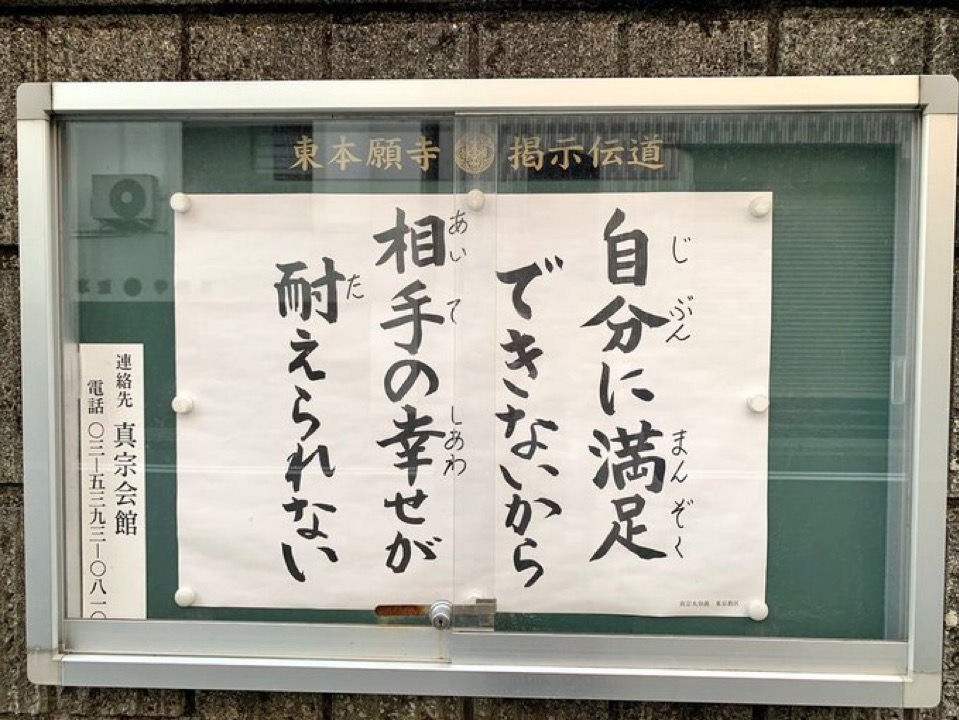 東本願寺 掲示伝道
自分に満足
じぶん まんぞく
できないから
相手の幸せが
あいて しあわ
耐えられない
た
連絡先 真宗会館
電話 〇三―五三九三―〇八一〇
真宗大谷派 東京教区